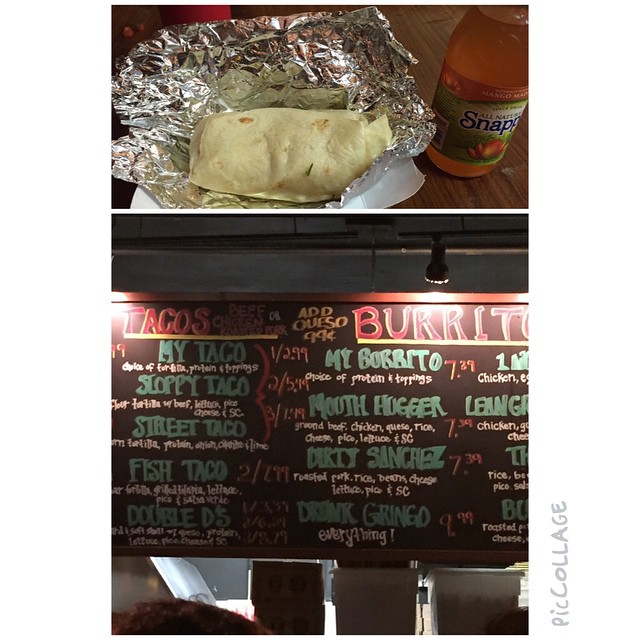 MANGO MAD
ALL NATURAL
Snapp
TACOS
BEEF
CHICKEN OR
PORK
ADD
QUESO
99¢
BURRITO
MY TACO 1/2.99
choice of tortilla, protein & toppings
SLOPPY TACO 2/5.49
flour tortilla w/ beef, lettuce, pico
cheese & SC
STREET TACO
tortilla, protein, onion, cilantro & lime
FISH TACO
tortilla, grilled tilapia, lettuce,
pico & salsa verde
DOUBLE D'S
& soft shell w/ queso, protein,
lettuce, pico, cheese & SC
MY BORRITO 7.39
choice of protein & toppings
MOUTH HUGGER 7.39
ground beef, chicken, queso, rice,
cheese, pico, lettuce & SC
DIRTY SANCHEZ 7.39
roasted pork, rice, beans, cheese
lettuce, pico & SC
DRUNK GRINGO 9.99
everything!
chicken,
LEAN GR
chicken,
chee
TH
rice, be
pico
BU
roasted
cheese,
PicCOLLAGE